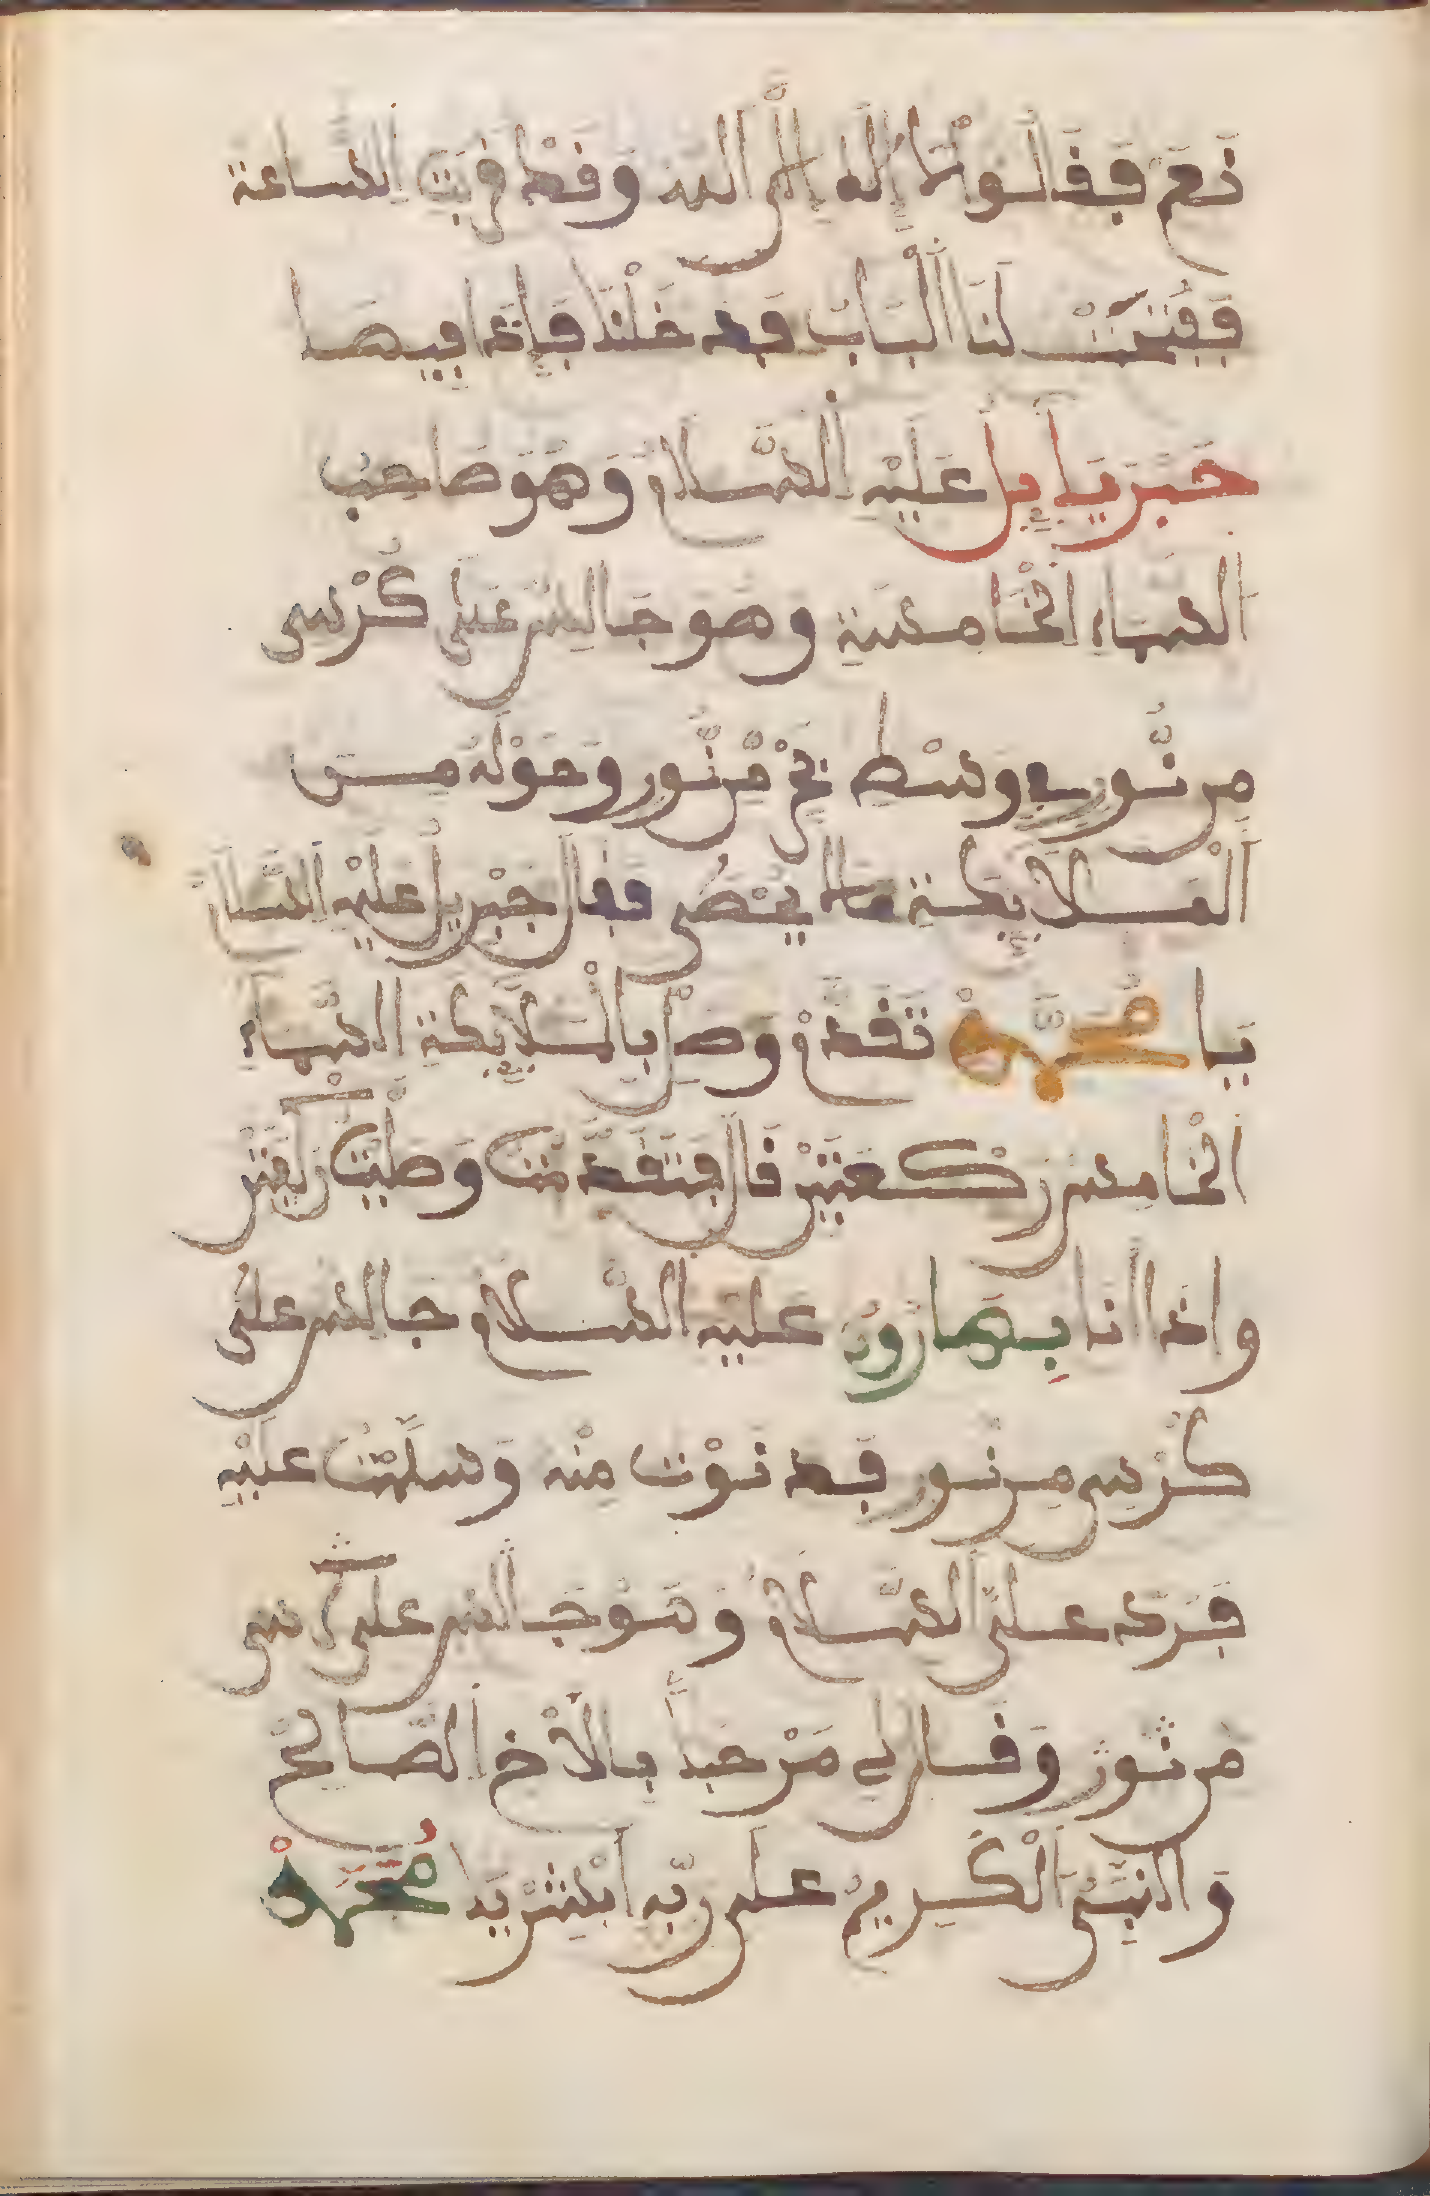 نَعَمْ فَقَالُوا لَا إِلَهَ إِلَّا اللَّه وَقَدْ قَرُبَتِ السَّاعَة
فَفُتِحَتْ لَنَا الْبَابُ فَدَخَلْنَا فَإِذَا فِيهَا
جَبَرَيَايِل عَلَيْهِ السَّلَامْ وَهُوَ صَاحِبُ
السَّمَاءِ الْخَامِسَةِ وَهُوَ جَالِسٌ عَلَى كُرْسِي
مِن نُّورٍ فِي وَسْطِ بَحْرٍ مِّن نُّورٍ وَحَوْلَهُ مِن
الْمَلَائِكَةِ مَا لَا يُحْصَى فَقَالَ جِبْرِيلُ عَلَيْهِ السَّلَام
يَا مُحَمَّدْ تَقَدَّمْ وَصَلِّ بِالْمَلَائِكَةِ السَّمَاءِ
الْخَامِس رَكْعَتَيْنْ قَالَ فَتَقَدَّمْتُ وَصَلَّيْتُ رَكْعَتَيْن
وإذا أنا بِهَارُون عَلَيْهِ السَّلَامْ جَالِس عَلَى
كُرْسِي مِن نُورٍ فَدَنَوْتُ مِنْه وَسَلَّمْتُ عَلَيْهِ
فَرَدَّ عَلَيَّ السَّلَامْ وَهُوَ جَالِس عَلَى كُرْسِي
مِن نُورٍ وَقَالَ لِي مَرْحَباً بِالْأَخِ الصَّالِحْ
وَالنَّبِيّ الْكَرِيمْ عَلَى رَبِّهِ ابْشِرْ يَا مُحَمَّدْ